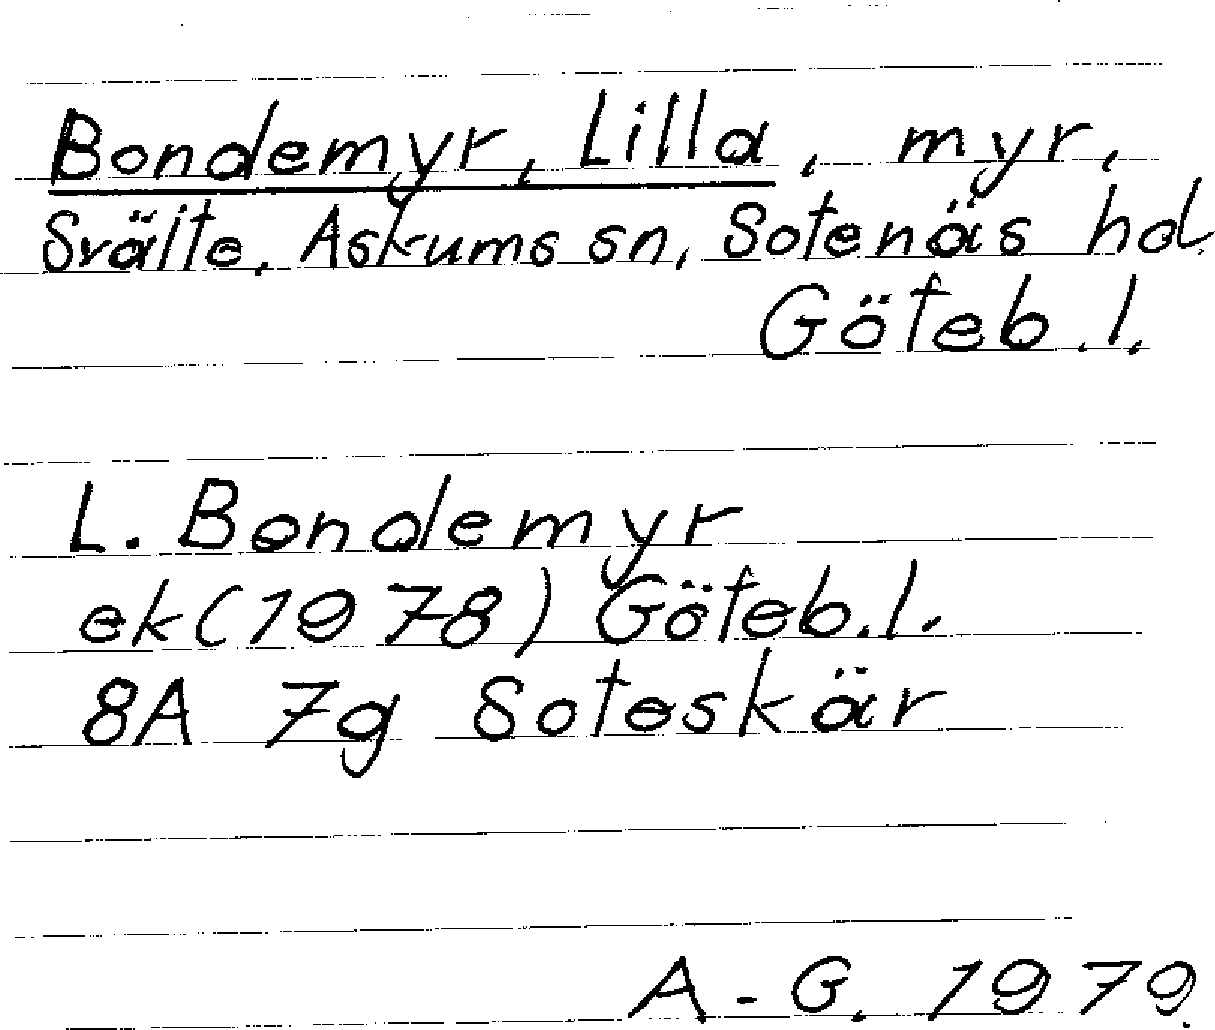 Bondemyr, Lilla, myr,
Svälte, Askums sn, Sotenäs hd
Göteb. l.
L. Bondemyr
ek (1978) Göteb. l.
8A 7g Soteskär
A-G. 1979.